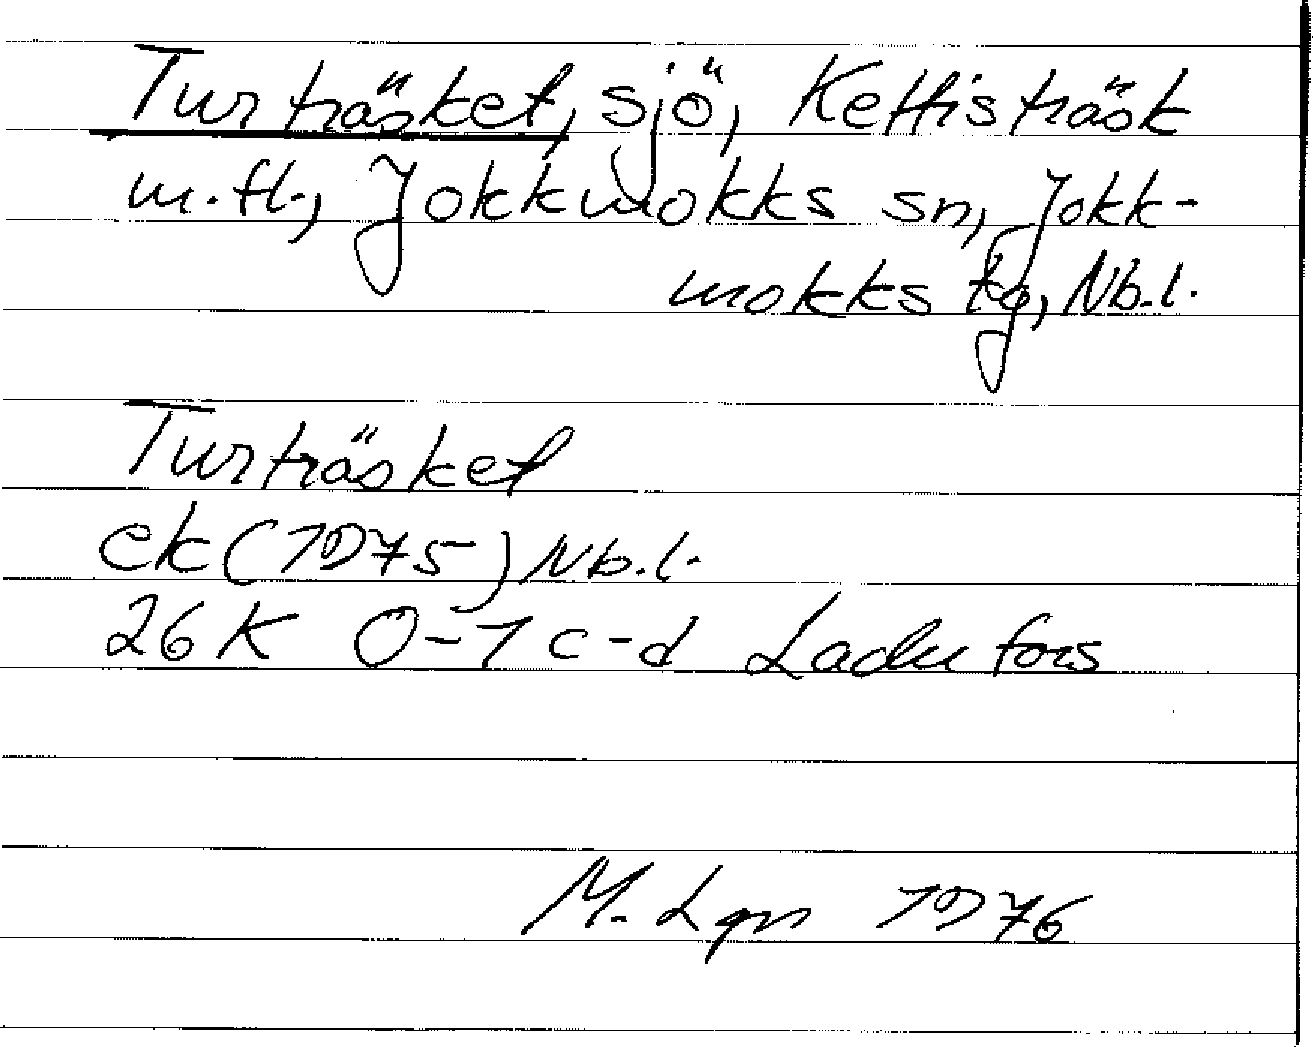 Turträsket, sjö, Kettisträsk
m.fl., Jokkmokks sn, Jokk-
mokks tg, Nb.l.
Turträsket
ek (1975) Nb.l.
26 K 0-1 c-d Ladufors
M. Lgn 1976